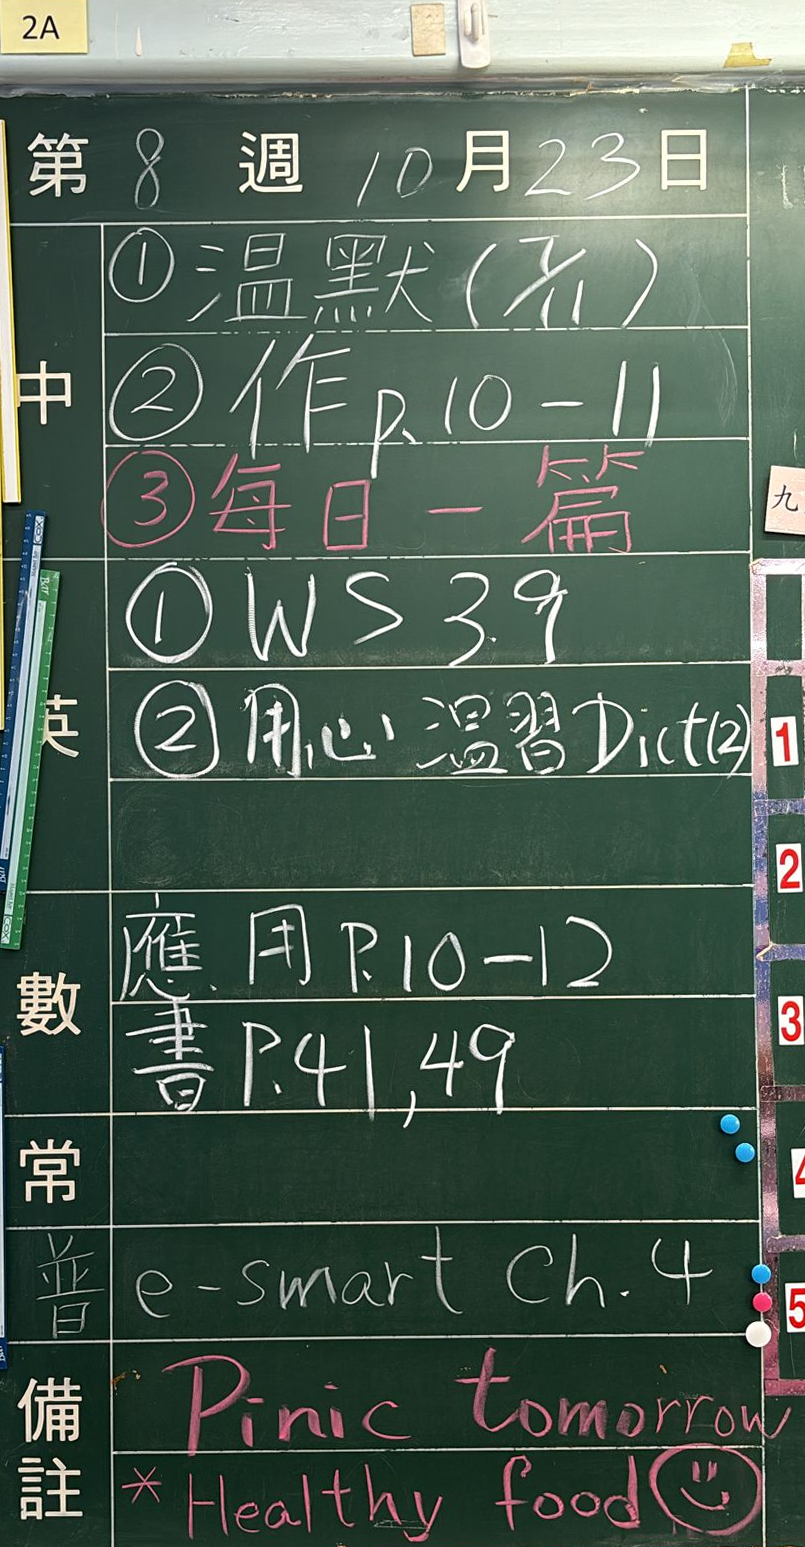 2A
第 8 週 10 月 23 日
中
① 温默 (7/11)
② 作 p.10-11
③ 每日一篇
英
① WS 39
② 用心温習 Dict(2)
數
應用 P.10-12
書 P.41,49
常
普
e-smart Ch.4
備註
Pinic tomorrow
* Healthy food
九
1
2
3
4
5